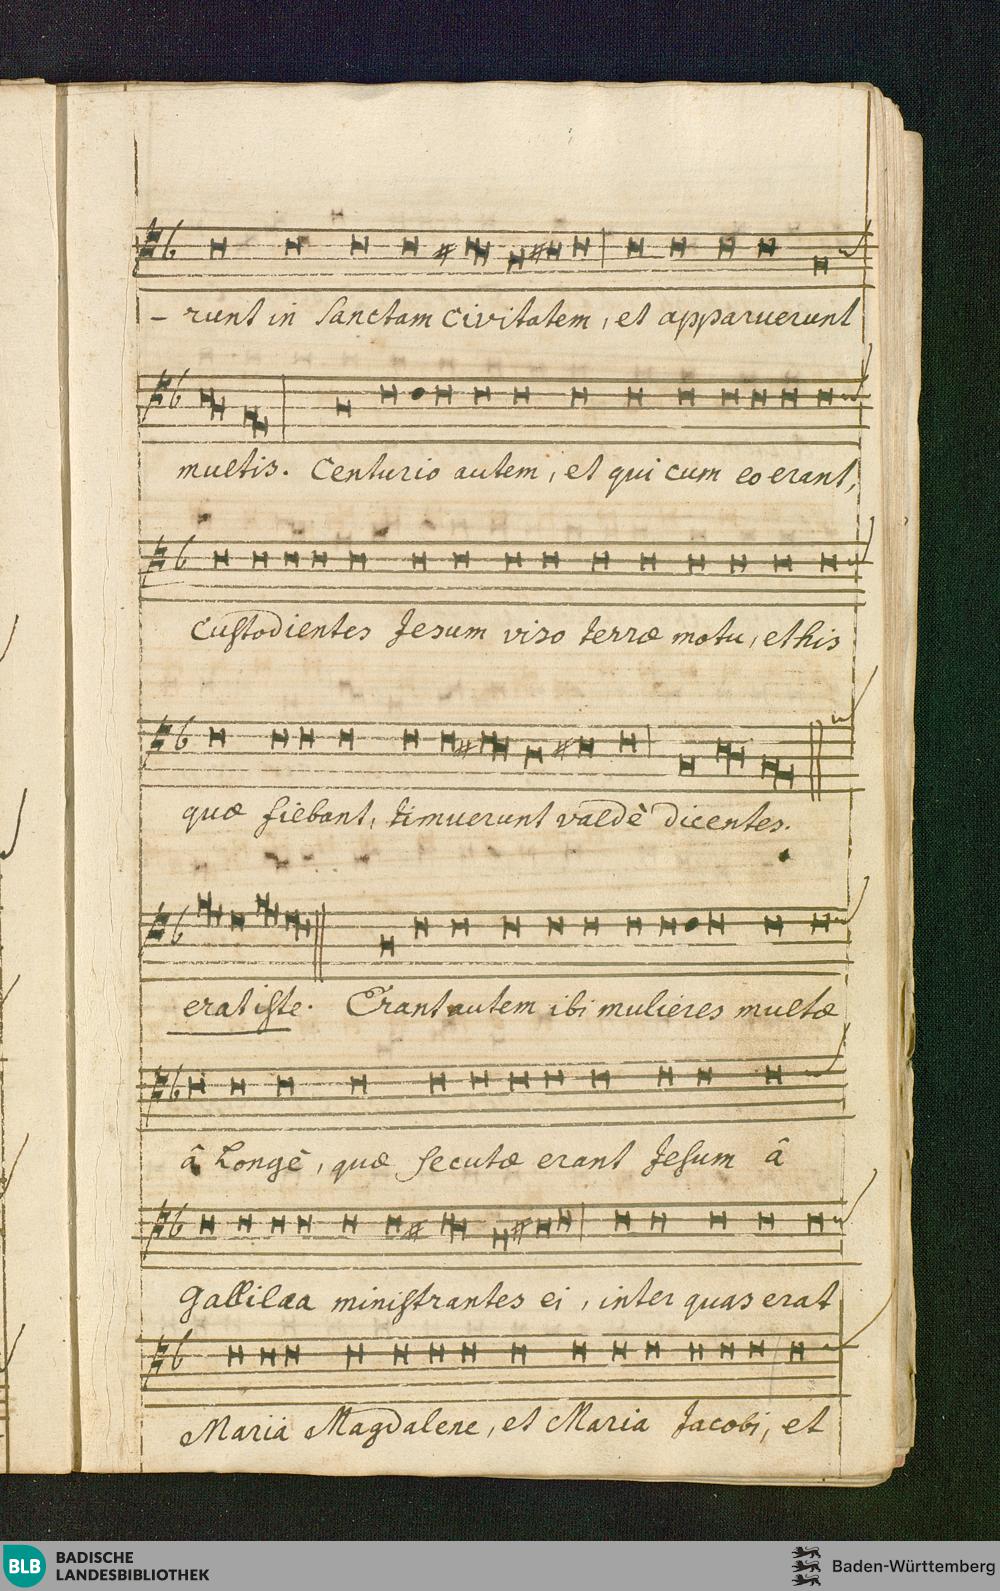 - runt in Sanctam Civitatem, et apparuerunt
multis. Centurio autem, et qui cum eo erant,
Custodientes Jesum viso terræ motu, et his
quæ fiebant, timuerunt valdè dicentes.
erat iste. Erant autem ibi mulieres multæ
â Longè, quæ Secutæ erant Jesum â
Gallilæa ministrantes ei, inter quas erat
Maria Magdalene, et Maria Jacobi, et
BLB BADISCHE
LANDESBIBLIOTHEK
Baden-Württemberg